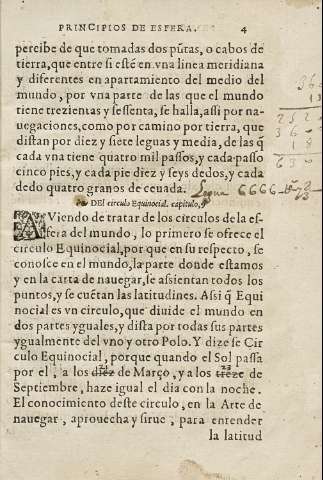 PRINCIPIOS DE ESFERA. 4
percibe de que tomadas dos pũtas, o cabos de
tierra, que entre si estẽ en vna linea meridiana
y diferentes en apartamiento del medio del
mundo, por vna parte de las que el mundo
tiene trezientas y sessenta, se halla, assi por na-
uegaciones, como por camino por tierra, que
distan por diez y siete leguas y media, de las q̃
cada vna tiene quatro mil passos, y cada passo
cinco pies, y cada pie diez y seys dedos, y cada
dedo quatro granos de ceuada. Legua 6666
DEl circulo Equinocial. capitulo, 9
AViendo de tratar de los circulos de la es-
fera del mundo, lo primero se ofrece el
circulo Equinocial, por que en su respecto, se
conosce en el mundo, la parte donde estamos
y en la carta de nauegar, se assientan todos los
puntos, y se cuẽtan las latitudines. Assi q̃ Equi
nocial es vn circulo, que diuide el mundo en
dos partes yguales, y dista por todas sus partes
ygualmente del vno y otro Polo. Y dize se Cir
culo Equinocial, porque quando el Sol passa
por el, a los diez de Março, y a los treze de
Septiembre, haze igual el dia con la noche.
El conocimiento deste circulo, en la Arte de
nauegar, aprouecha y sirue, para entender
la latitud